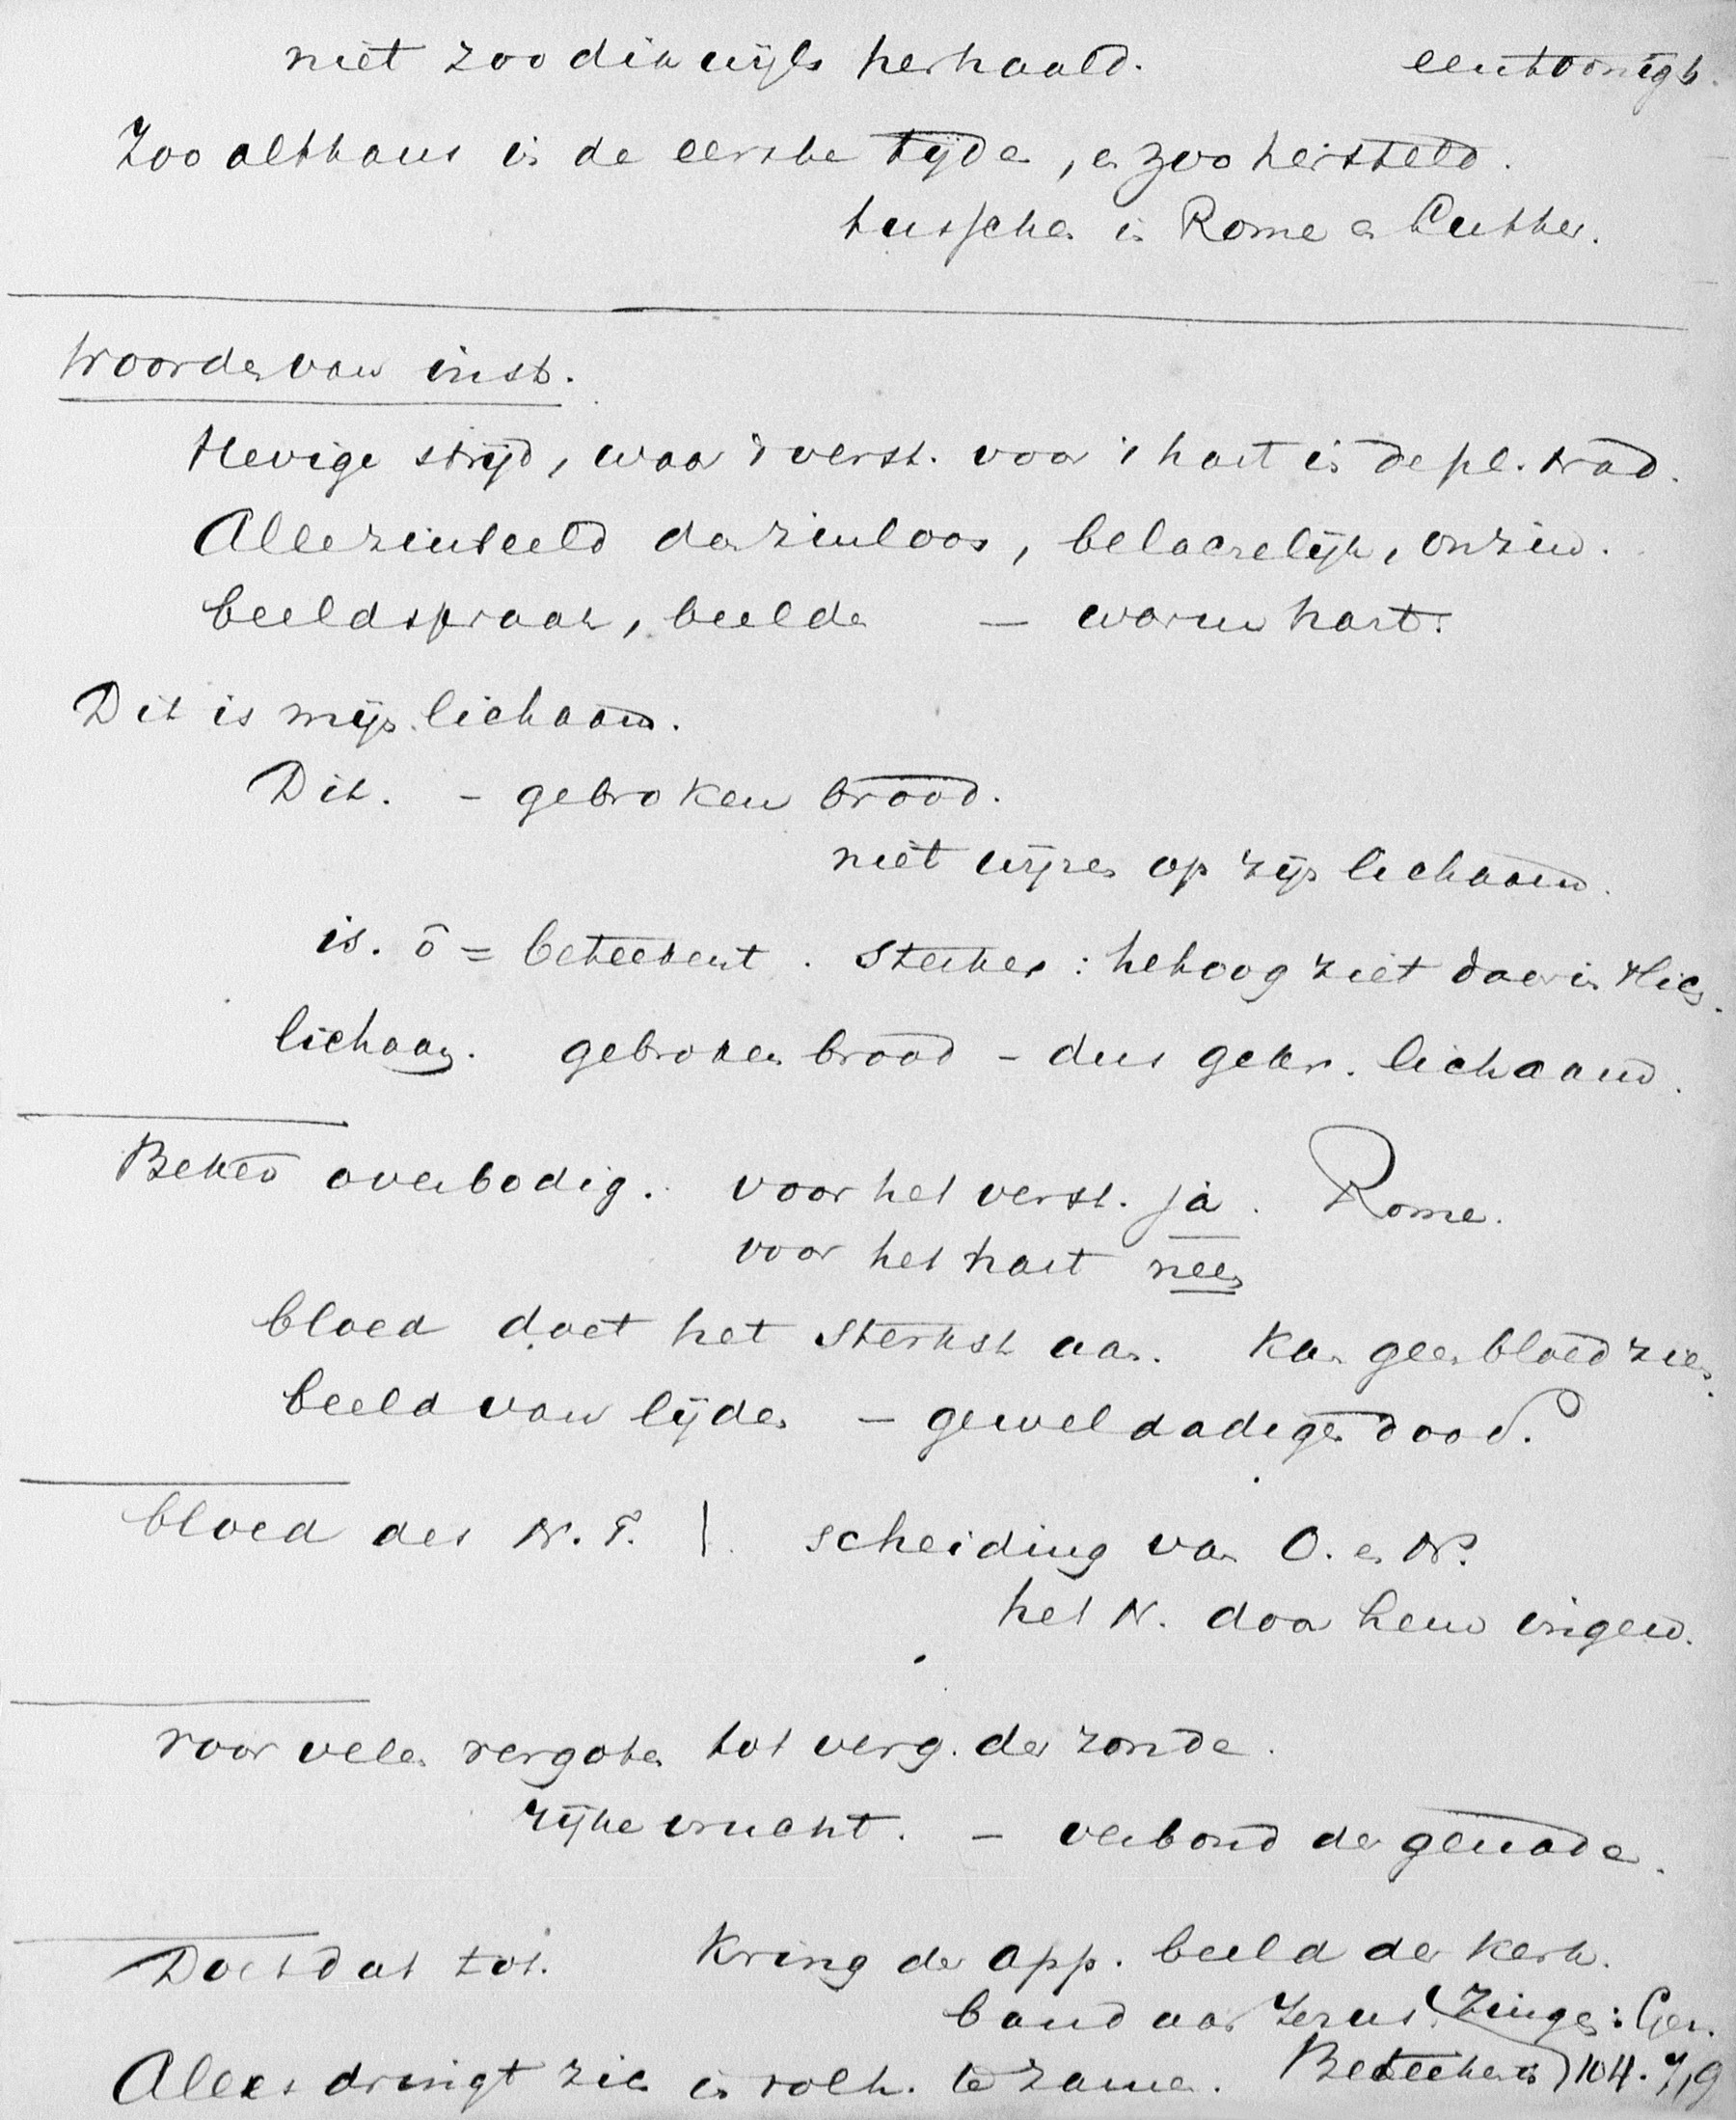 niet zoo dikwijls herhaald. eentoonigh.
Zoo althans in de eerste tijden, en zoo hersteld.
tusschen in Rome en Luther.
Woorden van inst.
Hevige strijd, waar 't verst. voor 't hart in de pl. trad.
Allezins beeld dan zinloos, belachelijk, onzin.
beeldspraak, beelden — warm hart.
Dit is mijn lichaam.
Dit. – gebroken brood.
niet wijzen op zijn lichaam.
is. ō = beteekent. Sterker: het oog ziet daarin Hier
lichaam. gebroken brood – dus gebr. lichaam.
Beker overbodig. voor het verst. ja. Rome.
voor het hart neen
bloed doet het sterkst aan. Kan geen bloed zien.
beeld van lijden – geweldadigen dood.
bloed des N. T. | scheiding van O. en N.
het N. door hem ingew.
voor velen vergoten tot verg. der zonden.
rijke vrucht. – verbond der genade.
Doet dat tot. Kring der App. beeld der kerk.
band aan Jezus. Zingen: Gez.
Alles dringt zich in volk. te zamen. Beteekenis 104. 7, 9